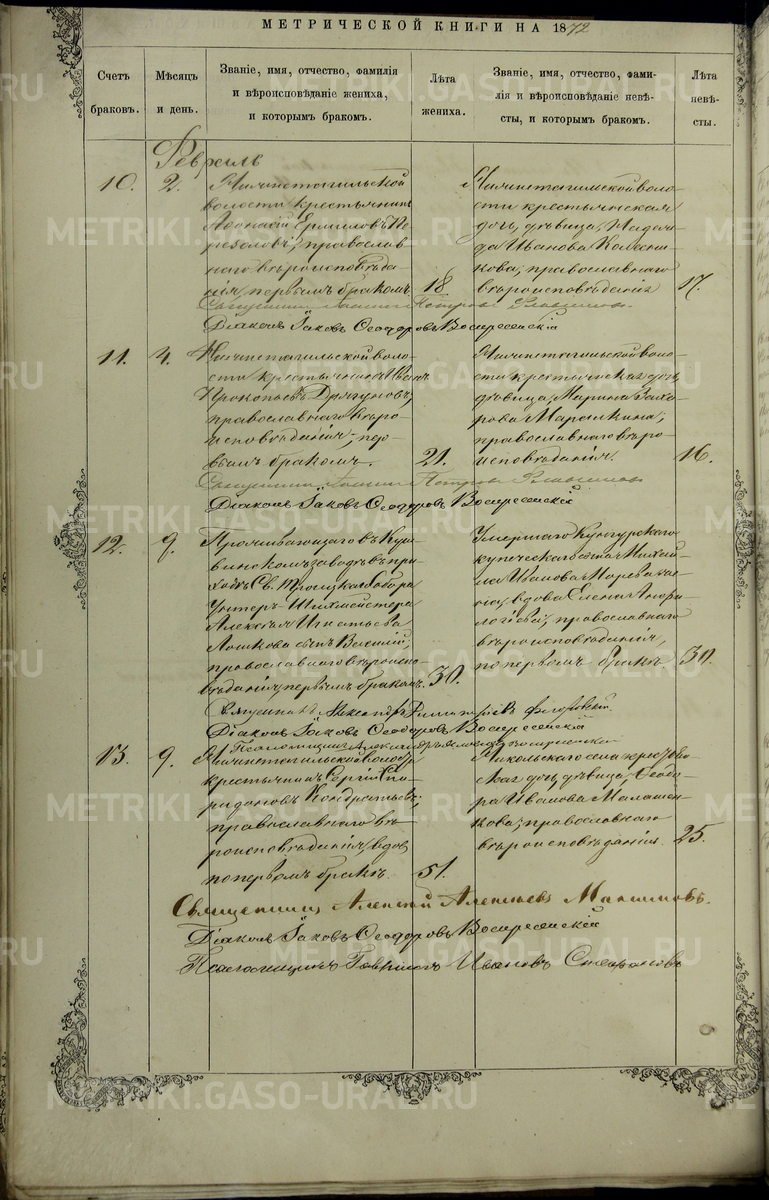 МЕТРИЧЕСКОЙ КНИГИ НА 1872
Счетъ браковъ.
Мѣсяцъ и день.
Званіе, имя, отчество, фамилія
и вѣроисповѣданіе жениха,
и которымъ бракомъ.
Лѣта жениха.
Званіе, имя, отчество, фами-
лія и вѣроисповѣданіе невѣ-
сты, и которымъ бракомъ.
Лѣта невѣ-
сты.
Февраль
10.
2.
Нижнетагильской
волости крестьянинъ
Ермиловъ
православ
наго вѣроисповѣда
нія, первымъ бракомъ
18
Нижнетагильской воло
сти крестьянская
дочь, дѣвица,
Иванова
православнаго
вѣроисповѣданія
17.
Священникъ Петровъ
Діаконъ Іаковъ Ѳеодоровъ Воскресенскій
11.
4.
Нижнетагильской воло-
сти крестьянинъ Иванъ
Прокопьевъ Дрягуновъ,
православнаго вѣро-
исповѣданія, пер-
вымъ бракомъ.
21.
Нижнетагильской воло-
сти крестьянская дочь,
дѣвица, Марина Заха-
рова
православнаго вѣро
исповѣданія.
16.
Священникъ Петровъ
Діаконъ Іаковъ Ѳеодоровъ Воскресенскій
12.
9.
Проживающаго въ Куш
винскомъ заводѣ въ при
ходѣ Св. Троицкаго Собора
Унтеръ-Шихтмейстера
Алексѣя Игнатьева
сынъ Василій,
православнаго вѣроиспо-
вѣданія, первымъ бракомъ.
30.
Умершаго Кунгурского
купеческаго сына Михаи
ла Иванова
вдова Елена
православнаго
вѣроисповѣданія,
по первомъ бракѣ
30.
Священникъ Александръ
Діаконъ Іаковъ Ѳеодоровъ Воскресенскій
Псаломщикъ Александръ
13.
9.
Нижнетагильской волости
крестьянинъ Сергій Спи
ридоновъ Кондратьевъ,
православнаго вѣ-
роисповѣданія, вдов
по первомъ бракѣ.
51.
Никольского села крестьян
ская дочь, дѣвица, Ѳеодо-
ра Иванова Малашен
кова, православнаго
вѣроисповѣданія.
25.
Священникъ Алексій Алексѣевъ Максимовъ.
Діаконъ Іаковъ Ѳеодоровъ Воскресенскій
Псаломщикъ Гавріилъ Ивановъ Стефановъ
METRIKI.GASO-URAL.RU